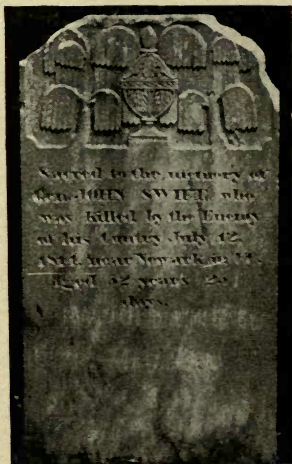 Sacred to the memory of
Gen. JOHN SWIFT, who
was killed by the Enemy
of his Cuntry July 12,
1814, near Newark in
Aged 52 years 25
days.